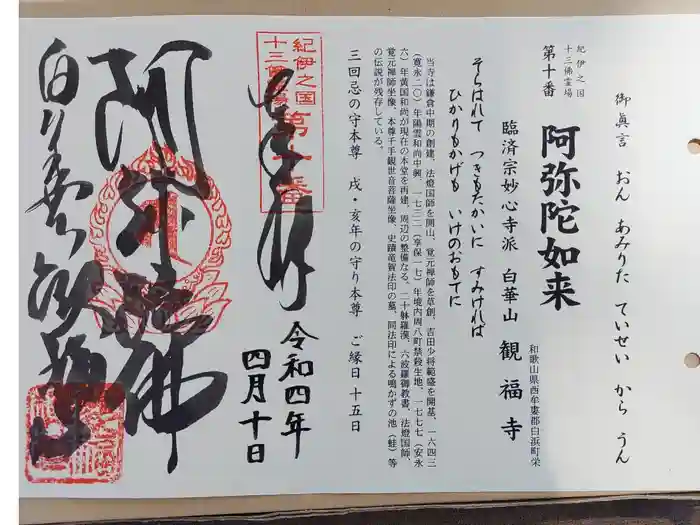 御眞言　おん　あみりた　ていせい　から　うん
紀伊之国
十三佛霊場
第十番
阿弥陀如来
和歌山県西牟婁郡白浜町栄
臨済宗妙心寺派　白華山　観福寺
そらはれて　つきもたかいに　すみければ
ひかりもかげも　いけのおもてに
当寺は鎌倉中期の創建、法燈国師を開山、覚元禅師を草創、吉田少将範盛を開基、一六四三
（寛永二〇）年陽雲和尚中興、一七三二（享保一七）年境内周八町禁殺生地、一七七七（安永
六）年黄国和尚が現在の本堂を再建、周辺の整備なる。二十躰羅漢、六波羅御教書、法燈国師、
覚元禅師坐像、本尊千手観世音菩薩坐像、史蹟竜賀法印の墓、同法印による鳴かずの池（蛙）等
の伝説が残存している。
三回忌の守本尊　戌・亥年の守り本尊　ご縁日　十五日
紀伊之国
十三佛霊場
第十番
奉拝
令和四年
四月十日
阿弥陀佛
白華山観福寺